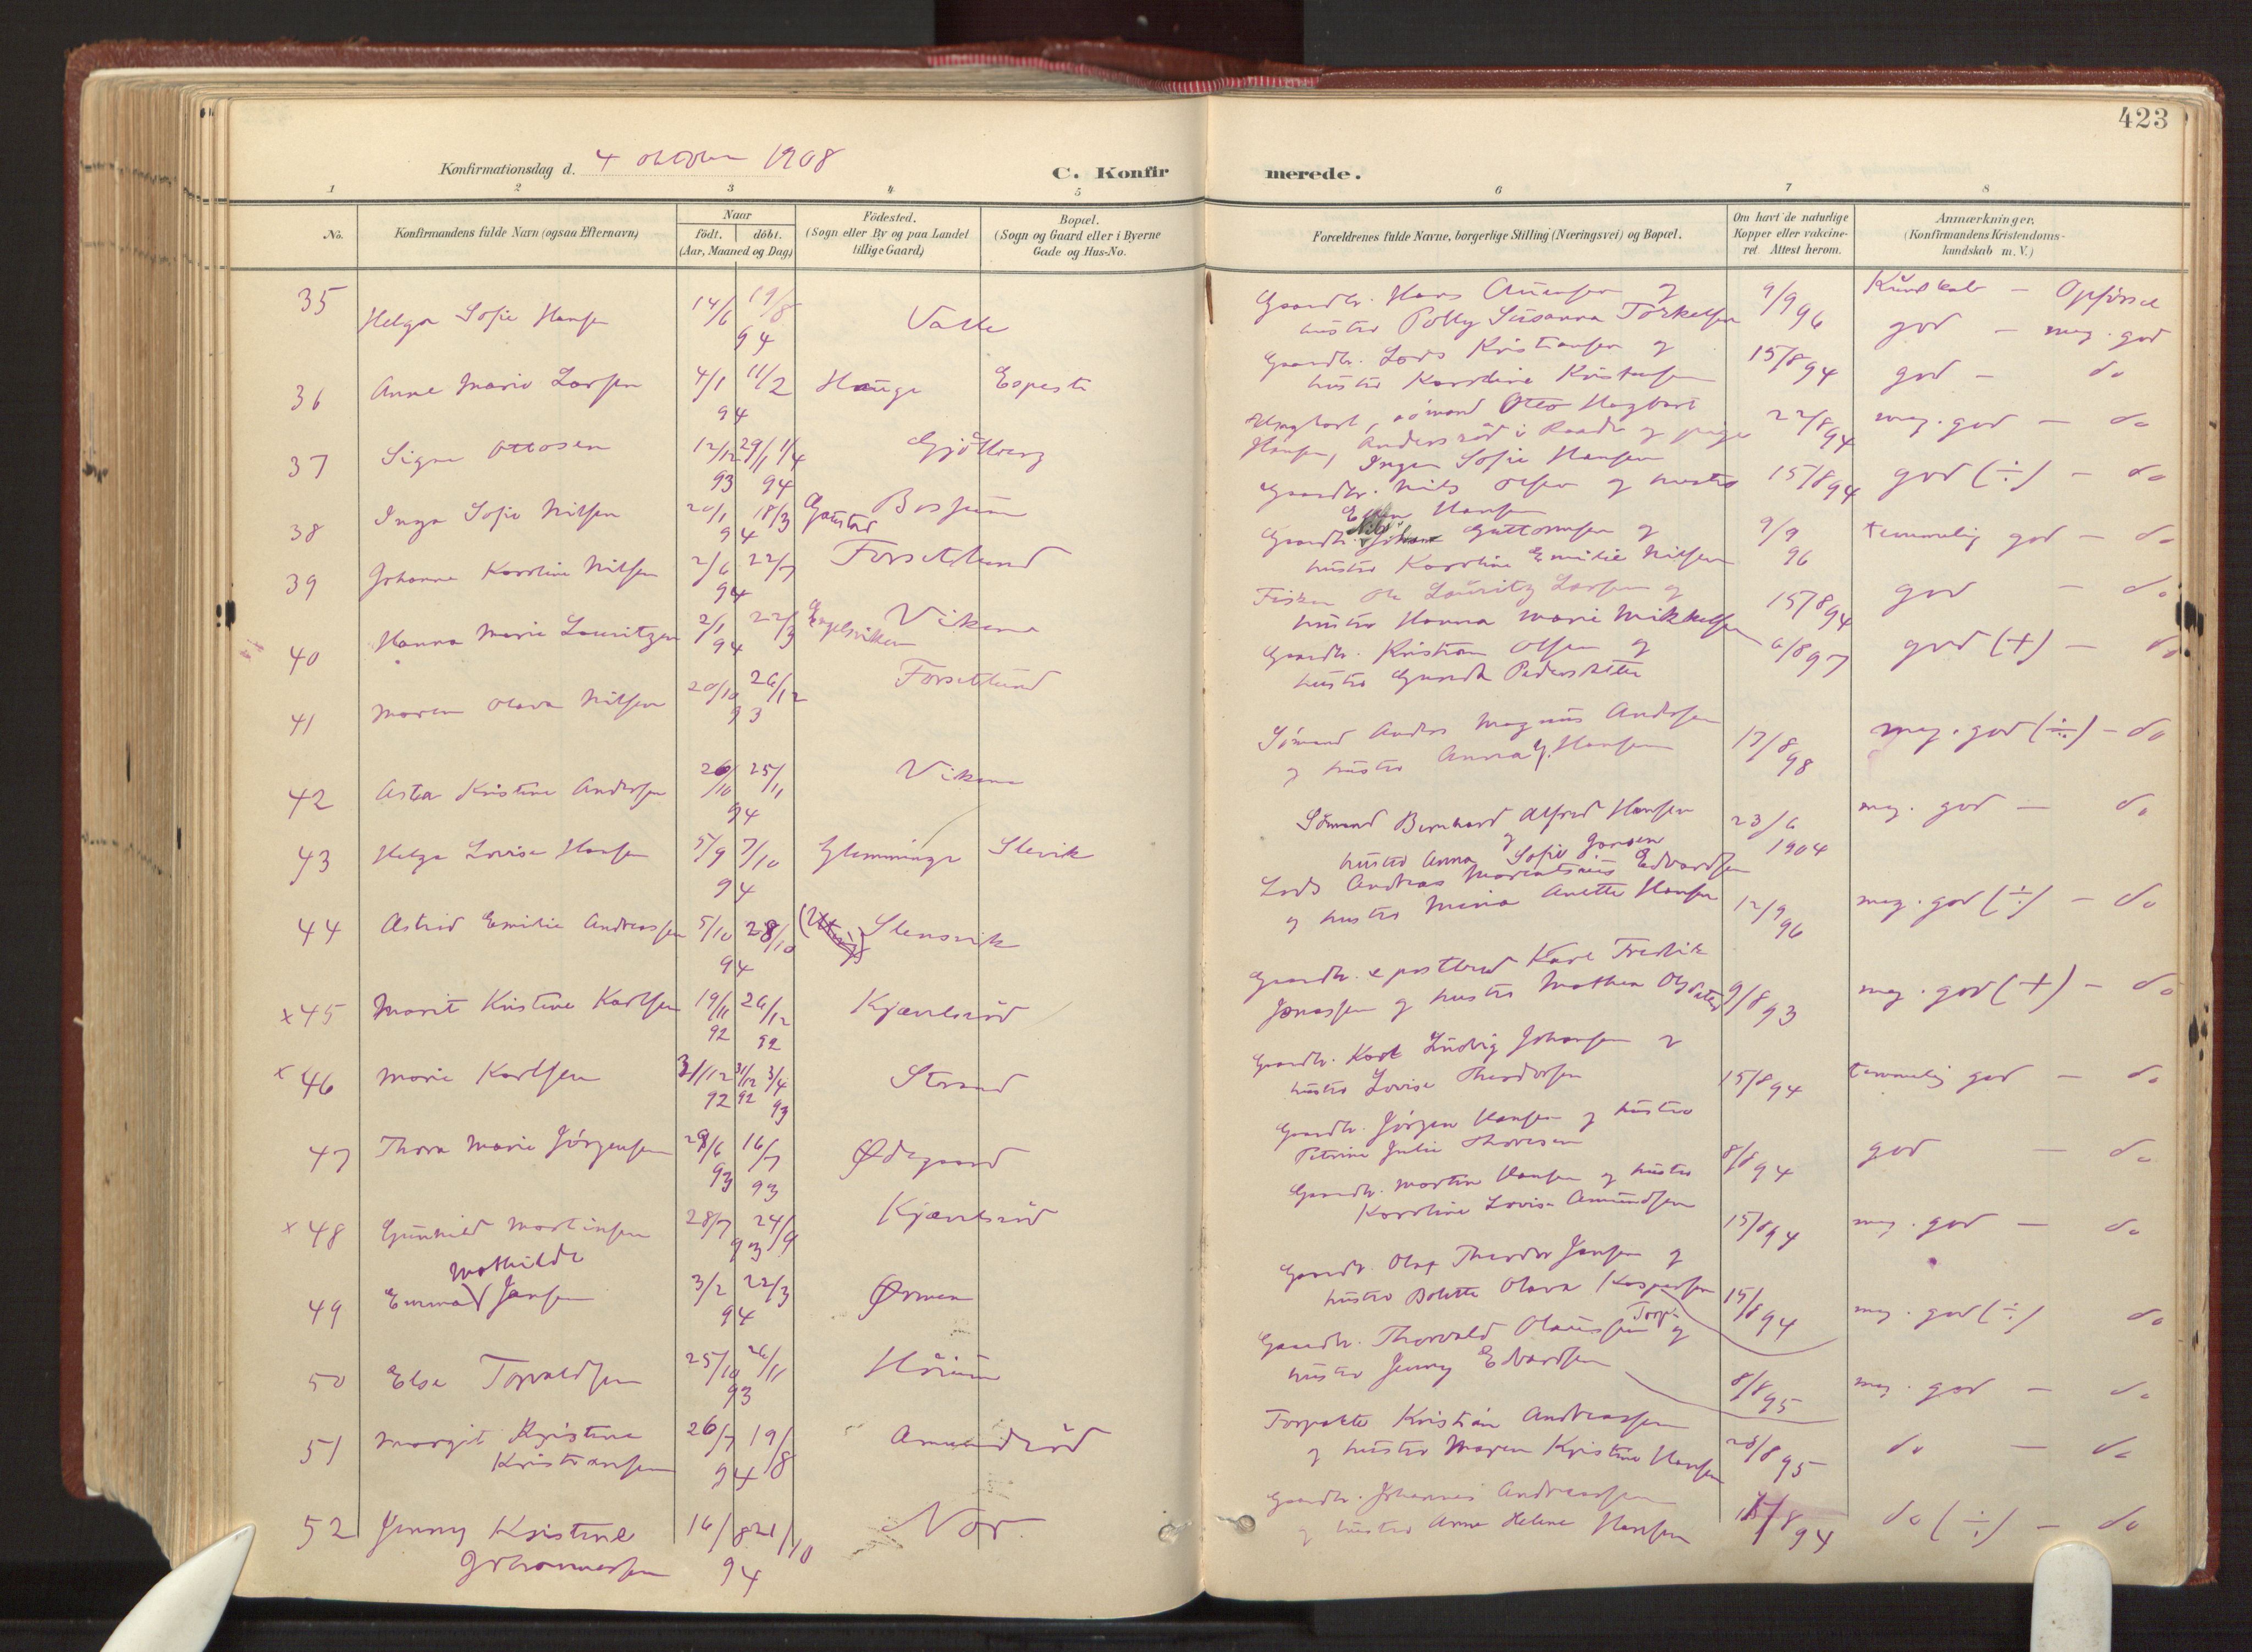 423
Konfirmationsdag d. 4 oktober 1908
C. Konfirmerede.
1 2 3 4 5 6 7 8
No.
Konfirmandens fulde Navn (ogsaa Efternavn)
Naar
født. døbt.
(Aar, Maaned og Dag)
Fødested.
(Sogn eller By og paa Landet
tillige Gaard)
Bopæl.
(Sogn og Gaard eller i Byerne
Gade og Hus-No.
Forældrenes fulde Navne, borgerlige Stilling (Næringsvei) og Bopæl.
Om havt de naturlige
Kopper eller vakcine-
ret. Attest herom.
Anmærkninger.
(Konfirmandens Kristendoms-
kundskab m. V.)
Kundskab - Opførsel
35 Helga Sofie Hansen 14/6 19/8 94 Valle
Gaardbr. Hans
hustru Polly Susanna Torkelsen 9/9 96 god - meg. god
36 Anne Marie Larsen 4/1 11/2 94 Hauge
Gaardbr. Lars Kristiansen og
hustru Karoline Kristensen 15/8 94 god - do
37 Signe Ottosen 12/12 93 29/1 1/4 94 Gjølberg
sømand Otto Hagbart
Hansen, Andersrød i Raade og pige
Inger Sofie Hansen 22/8 94 meg. god - do
38 Inga Sofie Nilsen 20/1 18/3 94 Gaustad
Gaardbr. Nils Olsen og hustru
Hansen 15/8 94 god (÷) - do
39 Johanne Karoline Nilsen 2/6 22/7 94 Forsetlund
Gaardbr. Nils Guttormsen og
hustru Karoline Emilie Nilsen 9/9 96 temmelig god - do
40 Hanna Marie Lauritzen 2/1 22/3 94 Engelsviken Vikene
Fisker Ole Lauritz Larsen og
hustru Hanna Marie Mikkelsen 15/8 94 god - do
41 Maren Olava Nilsen 20/10 26/12 93 Forsetlund
Gaardbr. Kristian Olsen og
hustru Pedersdatter 6/8 97 god (+) - do
42 Asta Kristine Andersen 26/10 25/11 94 Vikene
Sømand Anders Magnus Andersen
og hustru Anna G. Hansen 17/8 98 meg. god (÷) - do
43 Helga Lovise Hansen 5/9 7/10 94 Glemminge Slevik
Sømand Bernhard Alfred Hansen
og
hustru Anna Sofie Jansen 23/6 1904 meg. god - do
44 Astrid Emilie Andreassen 5/10 28/10 94 Slevsvik
Lods Andreas Edvardsen
og hustru Mina Anette Hansen 12/9 96 meg. god (÷) - do
x 45 Marit Kristine Karlsen 19/11 92 26/12 92 Kjærelsrød
Gaardbr. Karl Fredrik
Jonassen og hustru Mathea Olsdatter 9/8 93 meg. god (+) - do
x 46 Marie Karlsen 31/12 92 31/12 92 3/4 93 Strand
Gaardbr. Karl Ludvig Johansen og
hustru Lovise Theodorsen 15/8 94 temmelig god - do
47 Thora Marie Jørgensen 29/6 93 16/7 93 Ødegaard
Gaardbr. Jørgen Hansen og hustru
Petrine Julie Thoresen 8/8 94 god - do
x 48 Gunhild Martinsen 28/7 24/9 93 Kjærelsrød
Gaardbr. Martin Hansen og hustru
Karoline Lovise Amundsen 15/8 94 meg. god - do
49 Emma Mathilde Jansen 3/2 22/3 94 Ørmen
Gaardbr. Olaf Theodor Jansen og
hustru Bolette Olava Kaspersen 15/8 94 meg. god (÷) do
50 Else Torvaldsen 25/10 26/11 93 Hørum
Gaardbr. Thorvald Olaussen Torp. og
hustru Jenny Edvardsen 8/8 95 meg. god - do
51 Margit Kristine
Kristiansen 26/7 19/8 94 Amundrød
Torpakter Kristian Andreassen
og hustru Maren Kristine Hansen 28/8 95 do - do
52 Jenny Kristine
Johannessen 16/8 21/10 94 Nor.
Gaardbr. Johannes Andreassen
og hustru Anne Helene Hansen 15/8 94 do (÷) - do